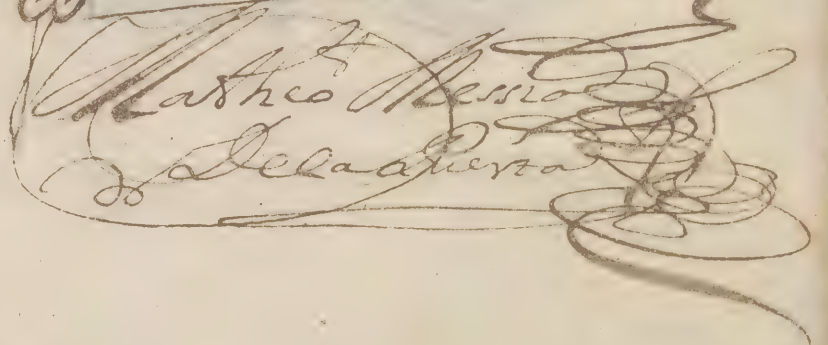 Matheo Messia
De la Puerta